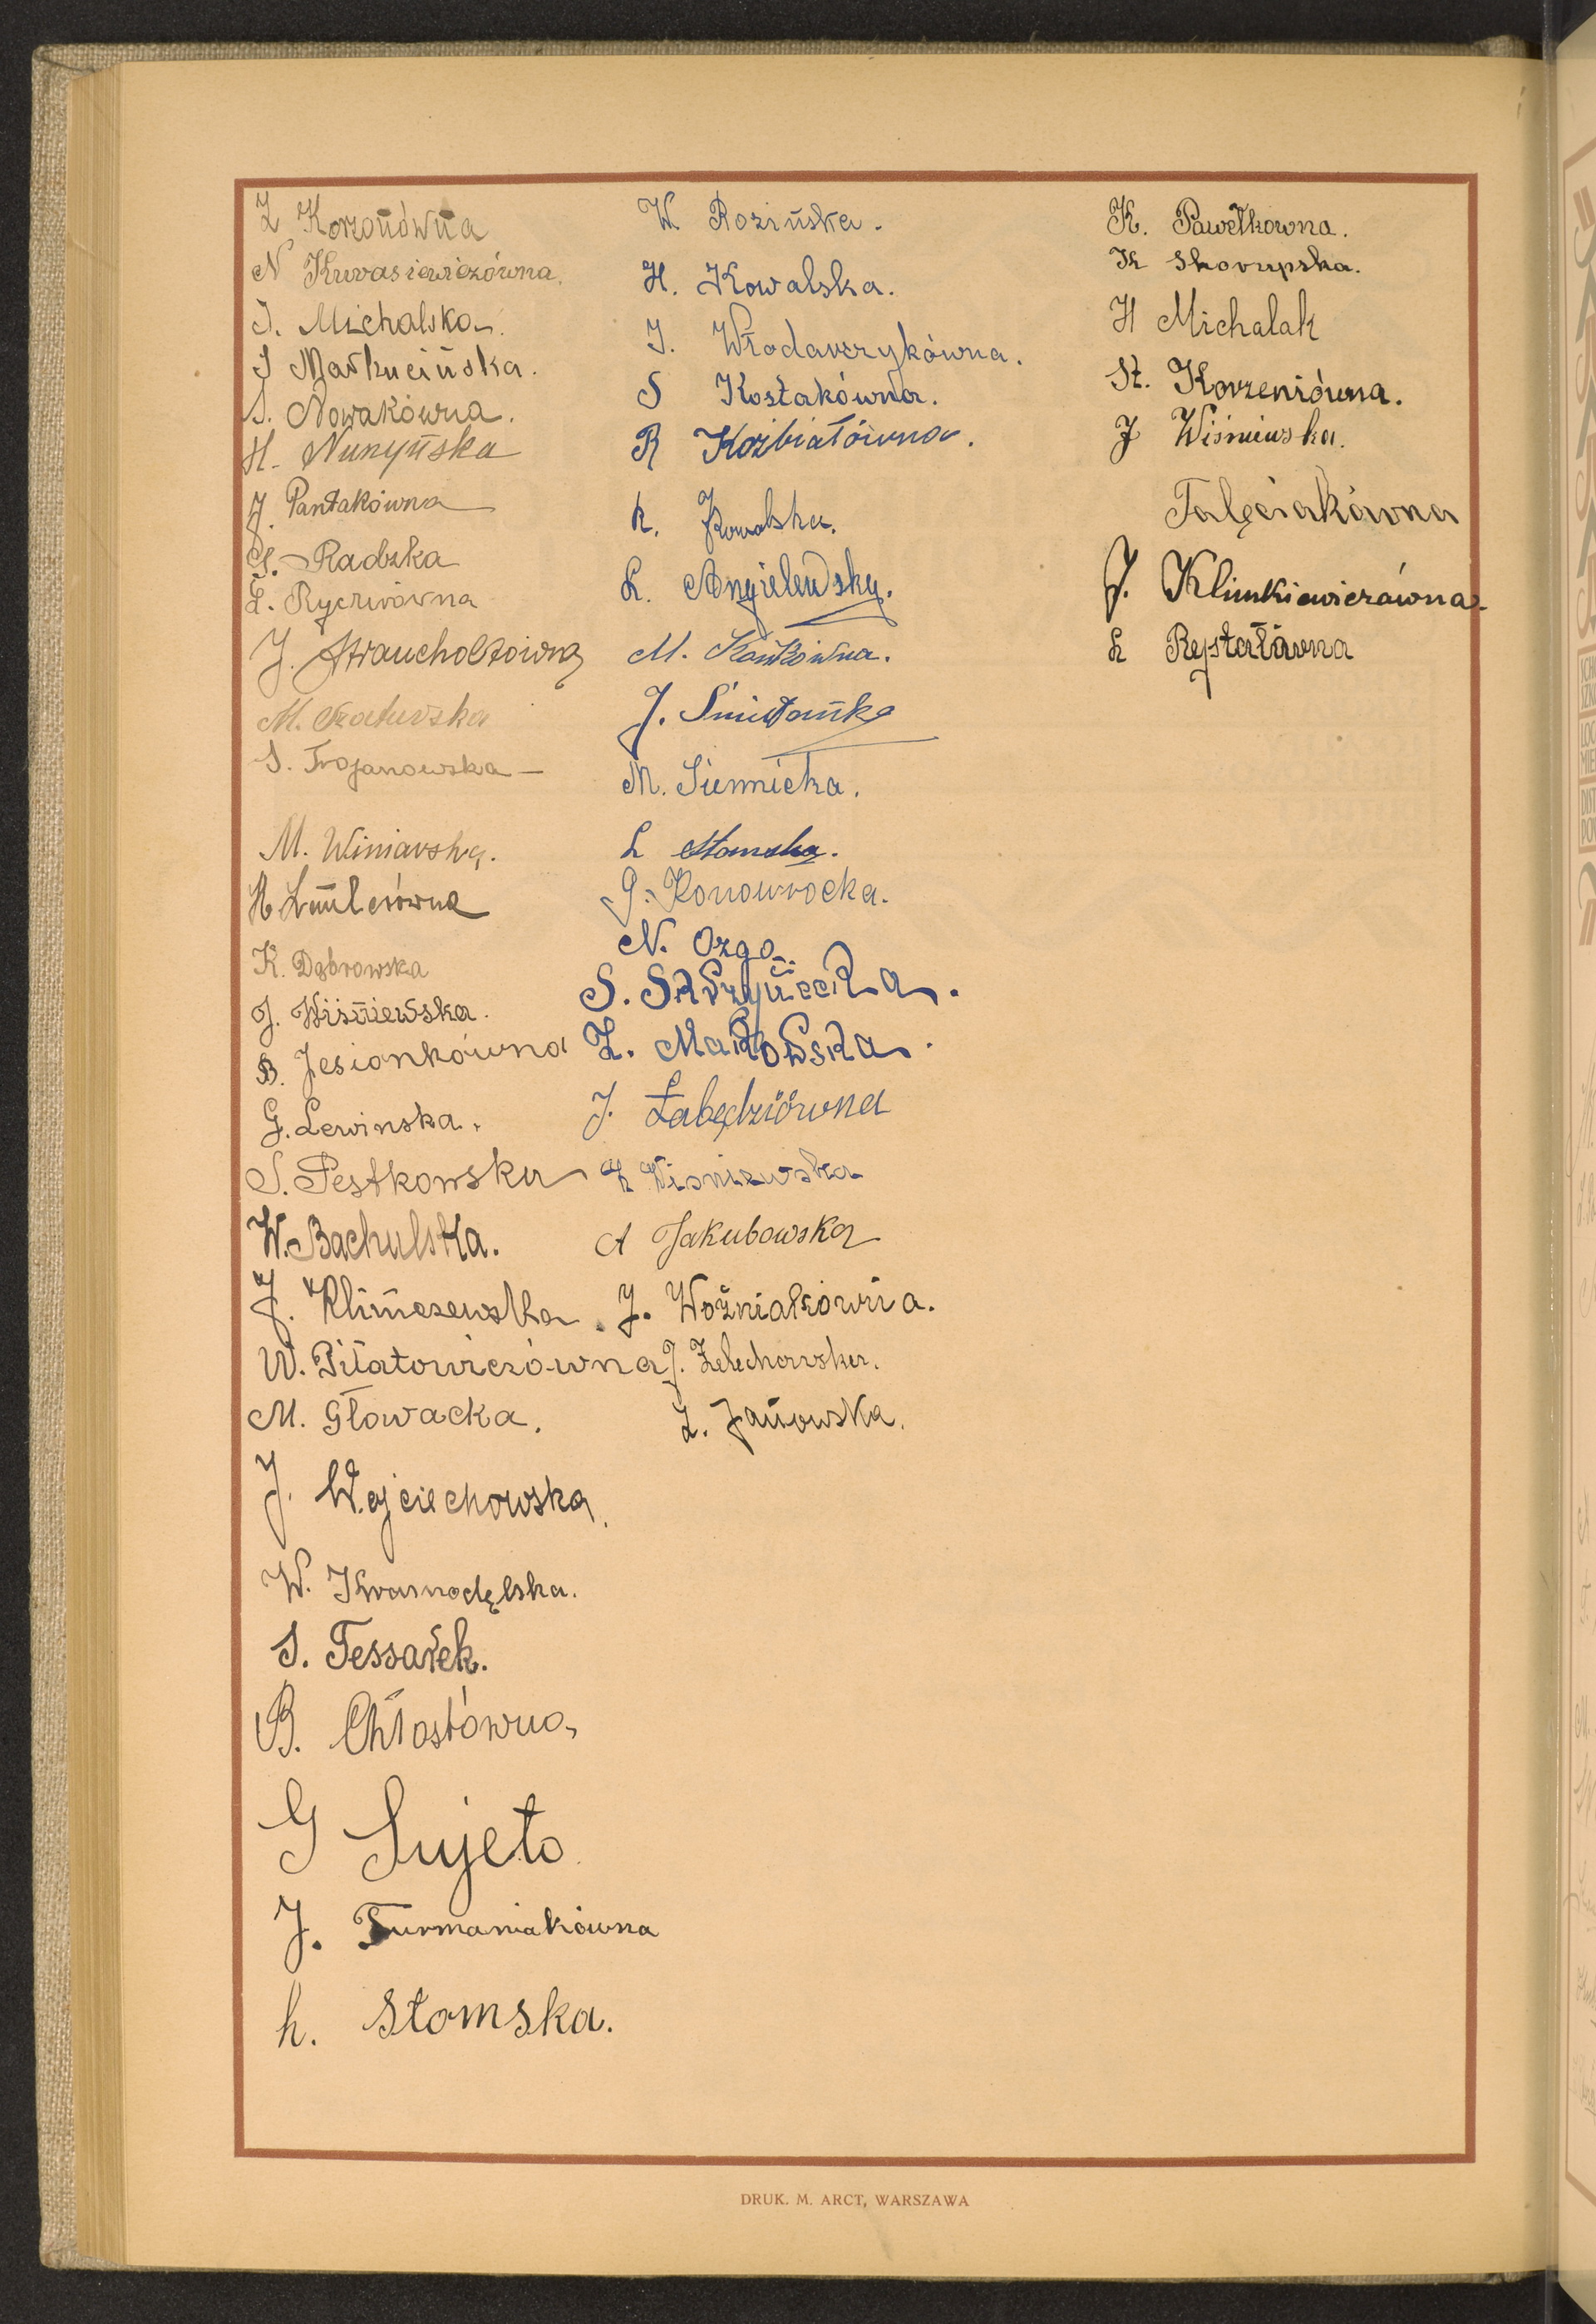 Z Korzonówna
N Kurasiewiczówna.
J. Michalska.
J Markucińska.
S. Nowakówna.
H. Nunyńska
J. Pantakówna
G. Radzka
Z. Rycriwówna
J. Straucholzówna
M. Szaturska
S. Trojanowska
M. Winiarska.
K. Dąbrowska
J. Wiśniewska.
B. Jesionkówna
G. Lewinska.
S. Pestkowska
W. Bachulska.
J. Klimaszewska.
W. Piłatowiczówna
M. Głowacka.
J. Wojciechowska
W. Krasnodębska.
S. Tessarek.
B. Chłostówna
G Sujeto
J. Furmaniakówna
h. Słomska.
W Rozińska.
H. Kowalska.
J. Włodarczykówna.
S Kostakówna.
R Kozbiałówna.
K. Kowalska.
L. Angielewska.
M. Kańkówna.
J. Śmietanka
M. Siennicka.
L
G. Konowrocka.
N. Ozga.
S. Skrzynecka.
Z. Makowska.
J. Łabędziówna
Z Wiśniewska
A Jakubowska
J. Woźniakówna.
J. Żelechowska.
Z. Janowska.
K. Pawełkowna.
K Skorupska.
H Michalak
St. Korzeniówna.
J Wiśniewska.
Talęciakówna
J. Klimkiewiczówna.
L Rejstatówna
DRUK. M. ARCT, WARSZAWA